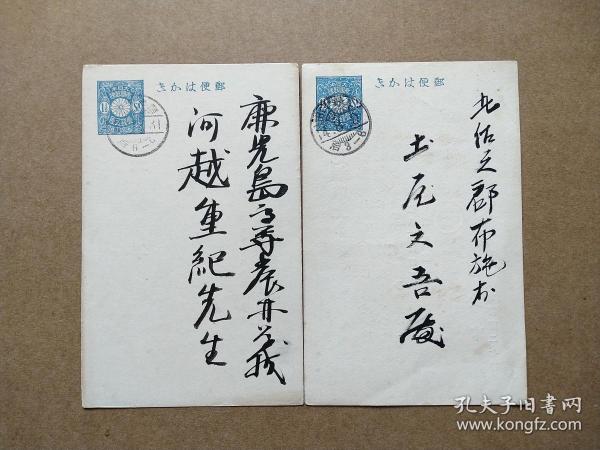 郵便はかき
鹿児島高等農林学校
河越重紀先生
郵便はかき
北佐久郡布施村
土屋文吾殿
孔夫子旧书网
www.kongfz.com